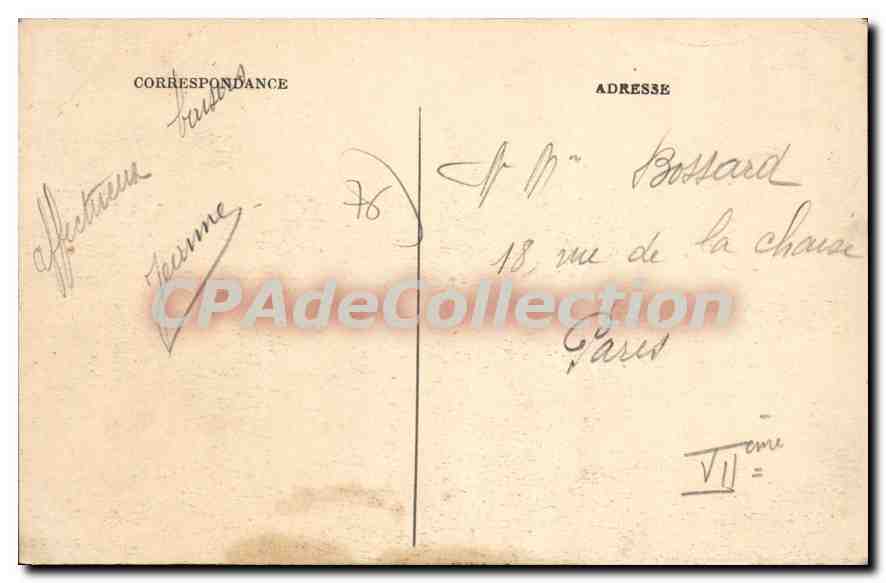 CORRESPONDANCE
affectueux baisers
Jeanne
76
ADRESSE
Bossard
18, rue de la chaise
Paris
VIIème
CPAdeCollection.com